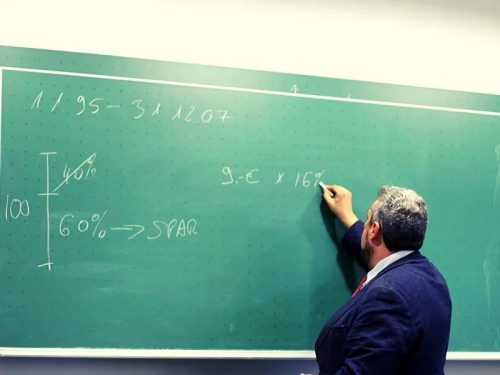 1 1 95 - 31 12 07
40%
100
60% → SPAR
9,-€ x 16%